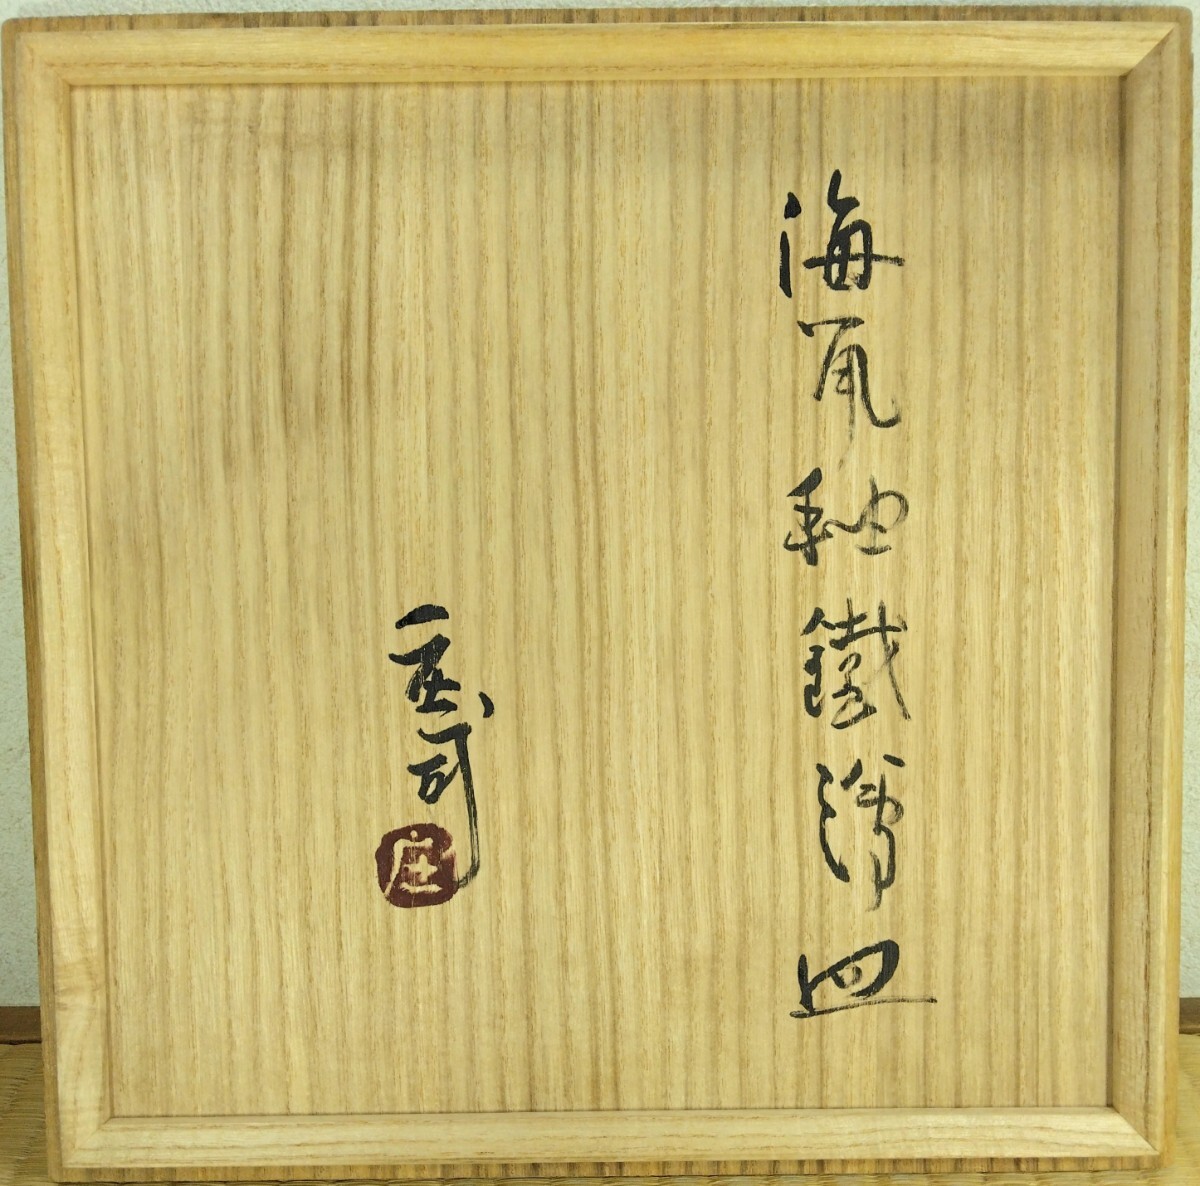 海鼠釉鐵繪皿
庄司
庄